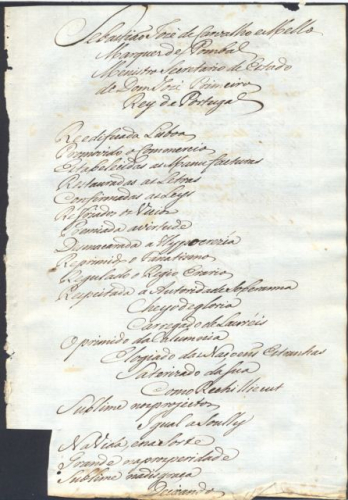 Sebastiaõ José de Carvalho e Mello
Marquez de Pombal
Ministro Secretario de Estado
de Dom José Primeiro
Rey de Portugal
Reedificada Lisboa
Promovido o Commercio
Estabelecidas as Manufacturas
Restauradas as Letras
Confirmadas as Leys
Refreados os Vicios
Premiada a virtude
Desmacarada a Hypocrezia
Reprimido o Fanatismo
Regulado o Regio Erario
Respeitada a Autoridade Soberana
Cheyo de gloria
Carregado de Laureis
Oprimido da Calumnia
Elogiado das Naçoens Estranhas
como
Sublime nos projectos
Igual a Sully
Na Vida, e na Morte
Grande na prosperidade
Sublime na disgraça